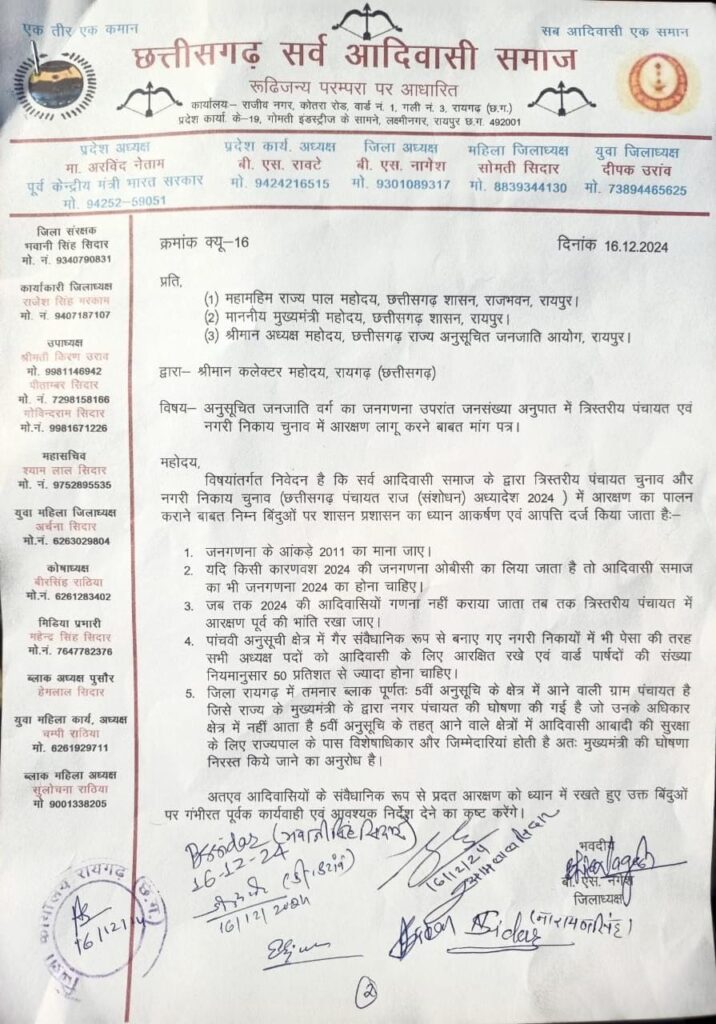 एक तीर एक कमान
सब आदिवासी एक समान
छत्तीसगढ़ सर्व आदिवासी समाज
रूढिजन्य परम्परा पर आधारित
कार्यालय– राजीव नगर, कोतरा रोड, वार्ड नं. 1, गली नं. 3, रायगढ़ (छ.ग.)
प्रदेश कार्या. के–19, गोमती इंडस्ट्रीज के सामने, लक्ष्मीनगर, रायपुर छ.ग. 492001
प्रदेश अध्यक्ष
मा. अरविंद नेताम
पूर्व केन्द्रीय मंत्री भारत सरकार
मो. 94252–59051
प्रदेश कार्य. अध्यक्ष
बी. एस. रावटे
मो. 9424216515
जिला अध्यक्ष
बी. एस. नागेश
मो. 9301089317
महिला जिलाध्यक्ष
सोमती सिदार
मो. 8839344130
युवा जिलाध्यक्ष
दीपक उरांव
मो. 73894465625
जिला संरक्षक
भवानी सिंह सिदार
मो. नं. 9340790831
कार्यकारी जिलाध्यक्ष
राजेश सिंह मरकाम
मो. नं. 9407187107
उपाध्यक्ष
श्रीमती किरण उरांव
मो. 9981146942
पीताम्बर सिदार
मो. नं. 7298158166
गोविन्दराम सिदार
मो.नं. 9981671226
महासचिव
श्याम लाल सिदार
मो. नं. 9752895535
युवा महिला जिलाध्यक्ष
अर्चना सिदार
मो.नं. 6263029804
कोषाध्यक्ष
बीरसिंह राठिया
मो.नं. 6261283402
मिडिया प्रभारी
महेन्द्र सिंह सिदार
मो.नं. 7647782376
ब्लाक अध्यक्ष पुसौर
हेमलाल सिदार
युवा महिला कार्य. अध्यक्ष
चम्पी राठिया
मो. 6261929711
ब्लाक महिला अध्यक्ष
सुलोचना राठिया
मो 9001338205
क्रमांक क्यू–16
दिनांक 16.12.2024
प्रति,
(1) महामहिम राज्य पाल महोदय, छत्तीसगढ़ शासन, राजभवन, रायपुर।
(2) माननीय मुख्यमंत्री महोदय, छत्तीसगढ़ शासन, रायपुर।
(3) श्रीमान अध्यक्ष महोदय, छत्तीसगढ़ राज्य अनुसूचित जनजाति आयोग, रायपुर।
द्वारा– श्रीमान कलेक्टर महोदय, रायगढ़ (छत्तीसगढ़)
विषय– अनुसूचित जनजाति वर्ग का जनगणना उपरांत जनसंख्या अनुपात में त्रिस्तरीय पंचायत एवं
नगरी निकाय चुनाव में आरक्षण लागू करने बाबत मांग पत्र।
महोदय,
विषयांतर्गत निवेदन है कि सर्व आदिवासी समाज के द्वारा त्रिस्तरीय पंचायत चुनाव और
नगरी निकाय चुनाव (छत्तीसगढ़ पंचायत राज (संशोधन) अध्यादेश 2024 ) में आरक्षण का पालन
कराने बाबत निम्न बिंदुओं पर शासन प्रशासन का ध्यान आकर्षण एवं आपत्ति दर्ज किया जाता हैः–
1. जनगणना के आंकड़े 2011 का माना जाए।
2. यदि किसी कारणवश 2024 की जनगणना ओबीसी का लिया जाता है तो आदिवासी समाज
का भी जनगणना 2024 का होना चाहिए।
3. जब तक 2024 की आदिवासियों गणना नहीं कराया जाता तब तक त्रिस्तरीय पंचायत में
आरक्षण पूर्व की भांति रखा जाए।
4. पांचवी अनुसूची क्षेत्र में गैर संवैधानिक रूप से बनाए गए नगरी निकायों में भी पेसा की तरह
सभी अध्यक्ष पदों को आदिवासी के लिए आरक्षित रखे एवं वार्ड पार्षदों की संख्या
नियमानुसार 50 प्रतिशत से ज्यादा होना चाहिए।
5. जिला रायगढ़ में तमनार ब्लाक पूर्णतः 5वीं अनुसूचि के क्षेत्र में आने वाली ग्राम पंचायत है
जिसे राज्य के मुख्यमंत्री के द्वारा नगर पंचायत की घोषणा की गई है जो उनके अधिकार
क्षेत्र में नहीं आता है 5वीं अनुसूचि के तहत् आने वाले क्षेत्रों में आदिवासी आबादी की सुरक्षा
के लिए राज्यपाल के पास विशेषाधिकार और जिम्मेदारियां होती है अतः मुख्यमंत्री की घोषणा
निरस्त किये जाने का अनुरोध है।
अतएव आदिवासियों के संवैधानिक रूप से प्रदत आरक्षण को ध्यान में रखते हुए उक्त बिंदुओं
पर गंभीरत पूर्वक कार्यवाही एवं आवश्यक निर्देश देने का कष्ट करेंगे।
Bssidar (भवानी सिंह सिदार)
16-12-24
16/12/2024
16/12/24
भवदीय
बी. एस. नागेश
जिलाध्यक्ष
Nsidar (नारायण सिंह)
कार्यालय रायगढ़ (छ.ग.)
16/12/24
2